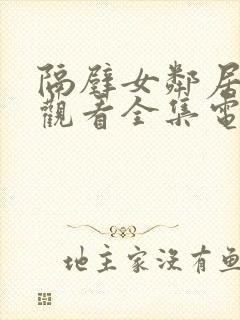 隔壁女鄰居
觀看全集電
地主家沒有魚